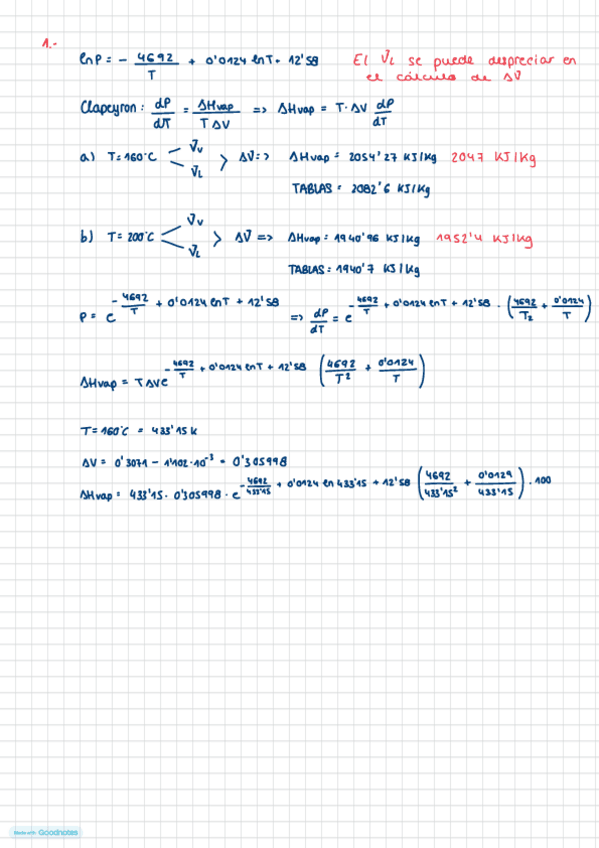 1.-
ln P = - 4692/T + 0'0124 ln T + 12'58 El V̄L se puede despreciar en
el cálculo de ΔV̄
Clapeyron: dP/dT = ΔHvap/TΔV => ΔHvap = T·ΔV dP/dT
a) T=160°C < V̄v V̄L > ΔV̄ => ΔHvap = 2054'27 KJ/Kg 2047 KJ/Kg
TABLAS = 2082'6 KJ/Kg
b) T=200°C < V̄v V̄L > ΔV̄ => ΔHvap = 1940'96 KJ/Kg 1952'4 KJ/Kg
TABLAS = 1940'7 KJ/Kg
P = e^(- 4692/T + 0'0124 ln T + 12'58) => dP/dT = e^(- 4692/T + 0'0124 ln T + 12'58) · (4692/T2 + 0'0124/T)
ΔHvap = TΔV e^(- 4692/T + 0'0124 ln T + 12'58) (4692/T² + 0'0124/T)
T=160°C = 433'15 K
ΔV = 0'3071 - 1'102·10⁻³ = 0'305998
ΔHvap = 433'15 · 0'305998 · e^(- 4692/433'15 + 0'0124 ln 433'15 + 12'58) (4692/433'15² + 0'0124/433'15) · 100
Made with Goodnotes